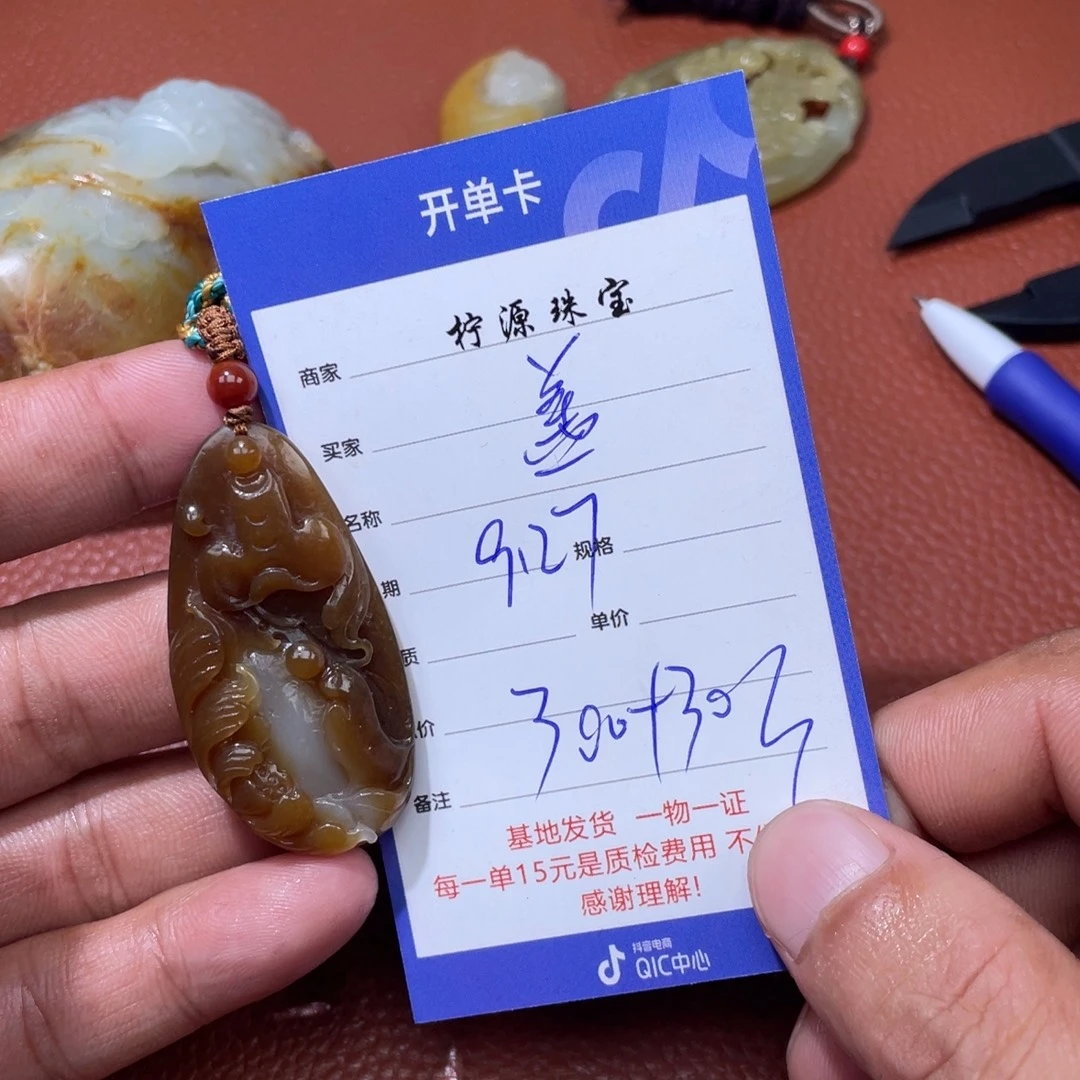 开单卡
商家 柠源珠宝
买家 盖
名称
期 9.27 规格
质 单价
价 300+30
备注
基地发货 一物一证
每一单15元是质检费用 不
感谢理解!
抖音电商
QIC中心